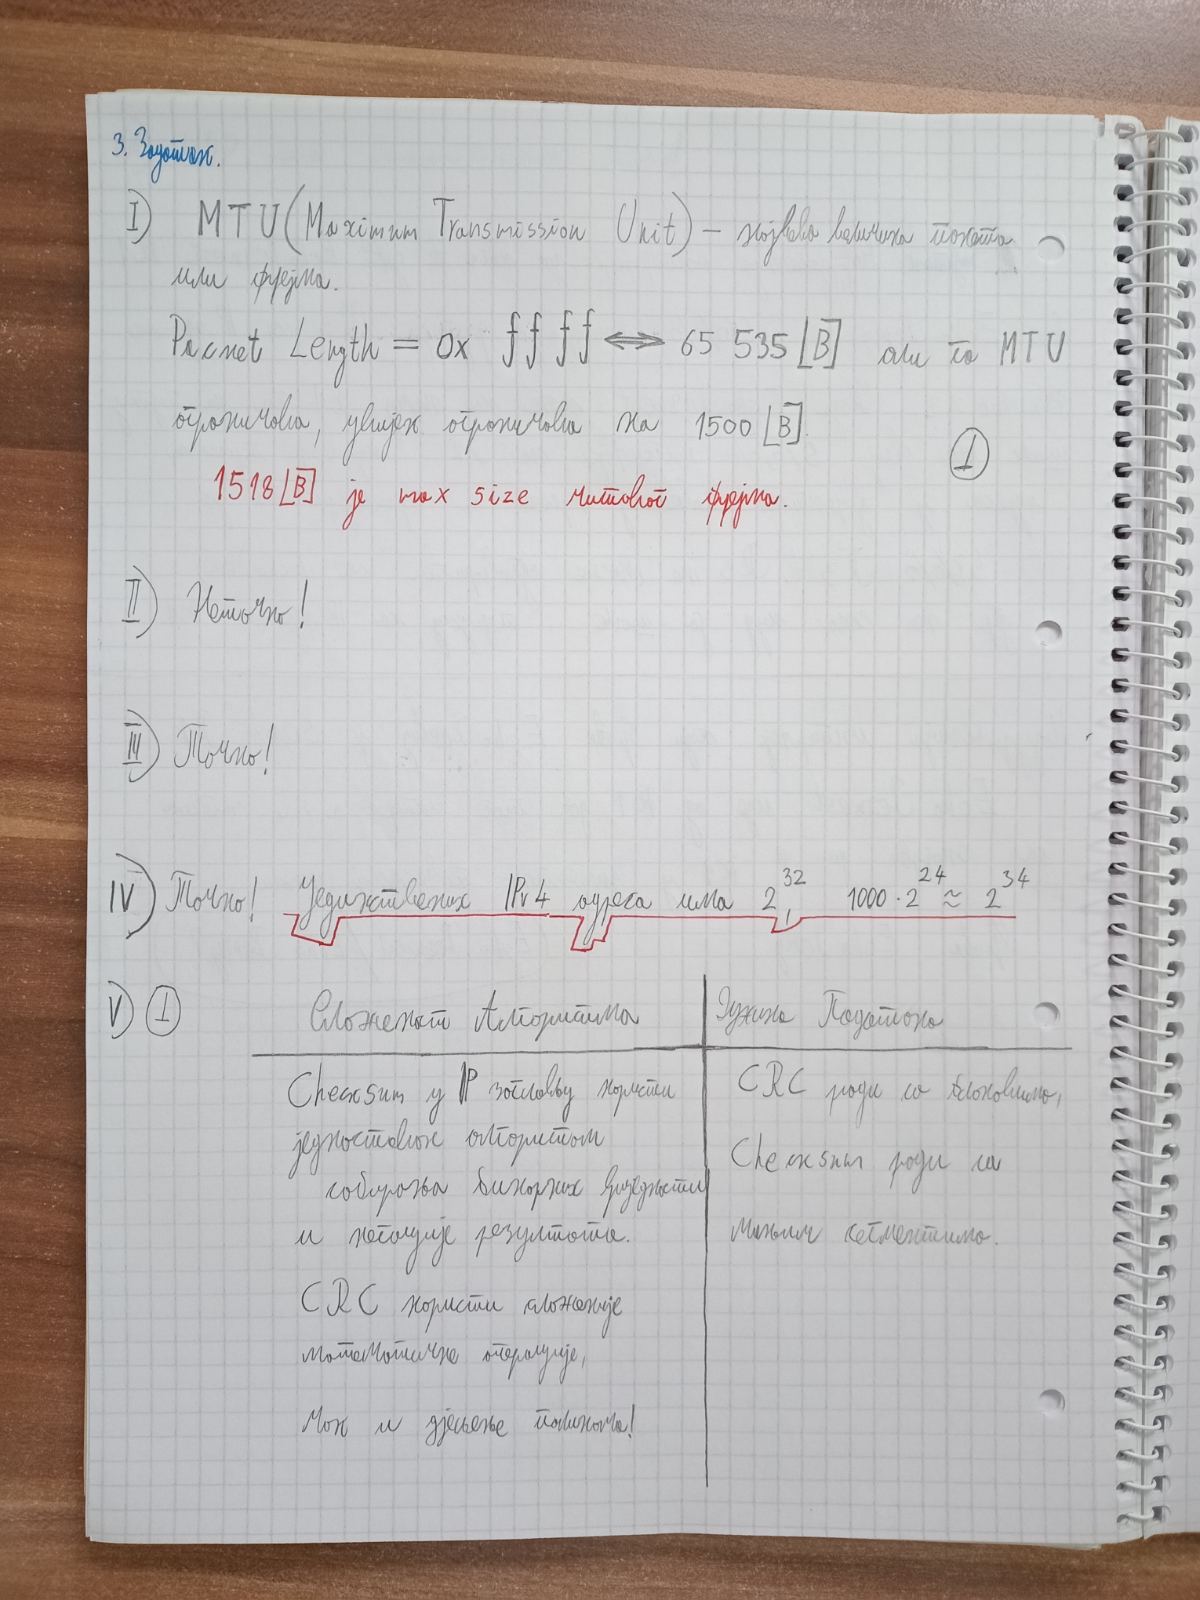 3. Задатак.
I) MTU (Maximum Transmission Unit) – највећа величина пакета
или фрејма.
Packet Length = 0x ffff ⟺ 65 535 [B] али га MTU
ограничава, увијек ограничава на 1500 [B].
①
1518 [B] је max size читавог фрејма.
II) Неточно!
III) Точно!
IV) Точно! Јединствених IPv4 адреса има 2^32, 1000 · 2^24 ≈ 2^34
V) ① Сложеност Алгоритма | Дужина Података
Checksum у IP заглављу користи
једноставан алгоритам
сабирања бинарних вриједности
и негације резултата.
CRC користи сложеније
математичке операције,
чак и дјељење полинома!
CRC ради са блоковима,
Checksum ради са
мањим сегментима.